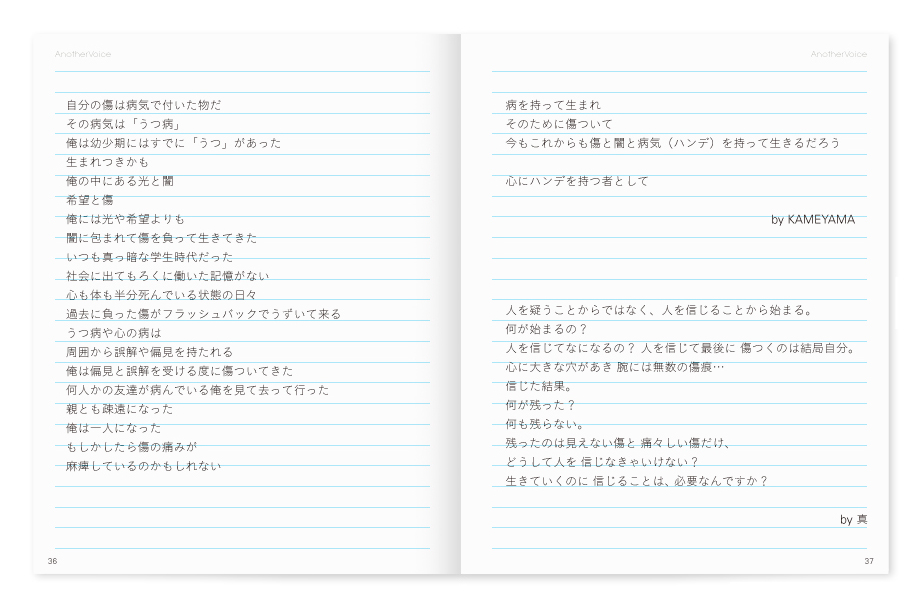 AnotherVoice
自分の傷は病気で付いた物だ
その病気は「うつ病」
俺は幼少期にはすでに「うつ」があった
生まれつきかも
俺の中にある光と闇
希望と傷
俺には光や希望よりも
闇に包まれて傷を負って生きてきた
いつも真っ暗な学生時代だった
社会に出てもろくに働いた記憶がない
心も体も半分死んでいる状態の日々
過去に負った傷がフラッシュバックでうずいて来る
うつ病や心の病は
周囲から誤解や偏見を持たれる
俺は偏見と誤解を受ける度に傷ついてきた
何人かの友達が病んでいる俺を見て去って行った
親とも疎遠になった
俺は一人になった
もしかしたら傷の痛みが
麻痺しているのかもしれない
36
AnotherVoice
病を持って生まれ
そのために傷ついて
今もこれからも傷と闇と病気（ハンデ）を持って生きるだろう
心にハンデを持つ者として
by KAMEYAMA
人を疑うことからではなく、人を信じることから始まる。
何が始まるの？
人を信じてなになるの？ 人を信じて最後に 傷つくのは結局自分。
心に大きな穴があき 腕には無数の傷痕…
信じた結果。
何が残った？
何も残らない。
残ったのは見えない傷と 痛々しい傷だけ、
どうして人を 信じなきゃいけない？
生きていくのに 信じることは、必要なんですか？
by 真
37